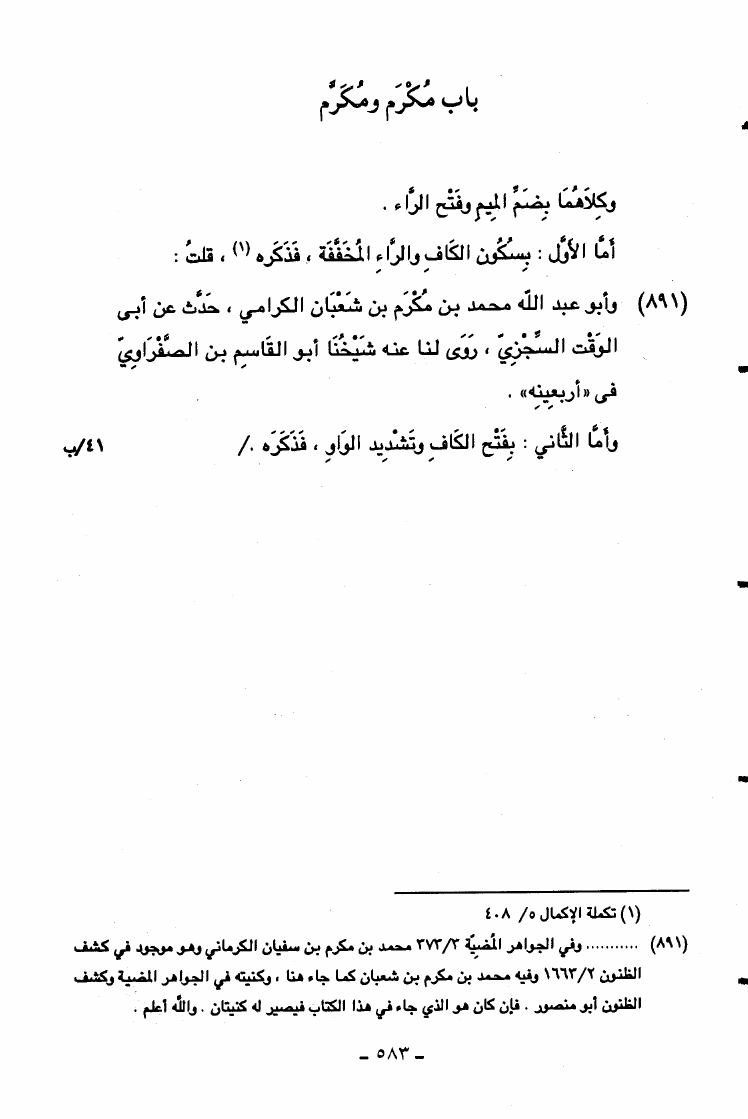 باب مُكْرَم ومُكَرَّم
وكِلَاهُمَا بِضَمِّ المِيمِ وفَتْح الرَّاء .
أمَّا الأوَّل : بِسكُون الكَافِ والرَّاءِ المُخَفَّفَة ، فَذَكَره (١) ، قلتُ :
(٨٩١) وأبو عبد اللّه محمد بن مُكْرَم بن شَعْبَان الكرامي ، حَدَّث عن أبى
الوَقْت السِّجْزِيّ ، رَوَى لنا عنه شَيْخُنَا أبو القَاسِم بن الصَّفْرَاوِيّ
فى «أربعِينِه» .
وأمَّا الثَّاني : بِفَتْح الكَافِ وتَشْدِيد الوَاوِ ، فَذَكَرَه ./ ٤١/ب
(١) تكملة الإكمال ٥/ ٤٠٨
(٨٩١) ........... وفي الجواهر المُضيَّة ٣٧٣/٣ محمد بن مكرم بن سفيان الكرماني وهو موجود في كشف
الظنون ١٦٦٣/٢ وفيه محمد بن مكرم بن شعبان كما جاء هنا ، وكنيته في الجواهر المضية وكشف
الظنون أبو منصور . فإن كان هو الذي جاء في هذا الكتاب فيصير له كنيتان . واللّه أعلم .
ـ ٥٨٣ ـ